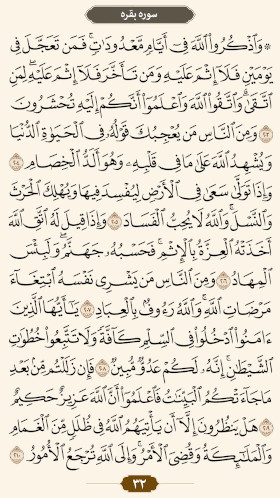 سوره بقره
۞ وَٱذۡكُرُواْ ٱللَّهَ فِيٓ أَيَّامٖ مَّعۡدُودَٰتٖۚ فَمَن تَعَجَّلَ فِي
يَوۡمَيۡنِ فَلَآ إِثۡمَ عَلَيۡهِ وَمَن تَأَخَّرَ فَلَآ إِثۡمَ عَلَيۡهِۖ لِمَنِ
ٱتَّقَىٰۗ وَٱتَّقُواْ ٱللَّهَ وَٱعۡلَمُوٓاْ أَنَّكُمۡ إِلَيۡهِ تُحۡشَرُونَ
٢٠٣ وَمِنَ ٱلنَّاسِ مَن يُعۡجِبُكَ قَوۡلُهُۥ فِي ٱلۡحَيَوٰةِ ٱلدُّنۡيَا
وَيُشۡهِدُ ٱللَّهَ عَلَىٰ مَا فِي قَلۡبِهِۦ وَهُوَ أَلَدُّ ٱلۡخِصَامِ ٢٠٤
وَإِذَا تَوَلَّىٰ سَعَىٰ فِي ٱلۡأَرۡضِ لِيُفۡسِدَ فِيهَا وَيُهۡلِكَ ٱلۡحَرۡثَ
وَٱلنَّسۡلَۚ وَٱللَّهُ لَا يُحِبُّ ٱلۡفَسَادَ ٢٠٥ وَإِذَا قِيلَ لَهُ ٱتَّقِ ٱللَّهَ
أَخَذَتۡهُ ٱلۡعِزَّةُ بِٱلۡإِثۡمِۚ فَحَسۡبُهُۥ جَهَنَّمُۖ وَلَبِئۡسَ
ٱلۡمِهَادُ ٢٠٦ وَمِنَ ٱلنَّاسِ مَن يَشۡرِي نَفۡسَهُ ٱبۡتِغَآءَ
مَرۡضَاتِ ٱللَّهِۚ وَٱللَّهُ رَءُوفُۢ بِٱلۡعِبَادِ ٢٠٧ يَٰٓأَيُّهَا ٱلَّذِينَ
ءَامَنُواْ ٱدۡخُلُواْ فِي ٱلسِّلۡمِ كَآفَّةٗ وَلَا تَتَّبِعُواْ خُطُوَٰتِ
ٱلشَّيۡطَٰنِۚ إِنَّهُۥ لَكُمۡ عَدُوّٞ مُّبِينٞ ٢٠٨ فَإِن زَلَلۡتُم مِّنۢ بَعۡدِ
مَا جَآءَتۡكُمُ ٱلۡبَيِّنَٰتُ فَٱعۡلَمُوٓاْ أَنَّ ٱللَّهَ عَزِيزٌ حَكِيمٌ
٢٠٩ هَلۡ يَنظُرُونَ إِلَّآ أَن يَأۡتِيَهُمُ ٱللَّهُ فِي ظُلَلٖ مِّنَ ٱلۡغَمَامِ
وَٱلۡمَلَٰٓئِكَةُ وَقُضِيَ ٱلۡأَمۡرُۚ وَإِلَى ٱللَّهِ تُرۡجَعُ ٱلۡأُمُورُ ٢١٠
۳۲